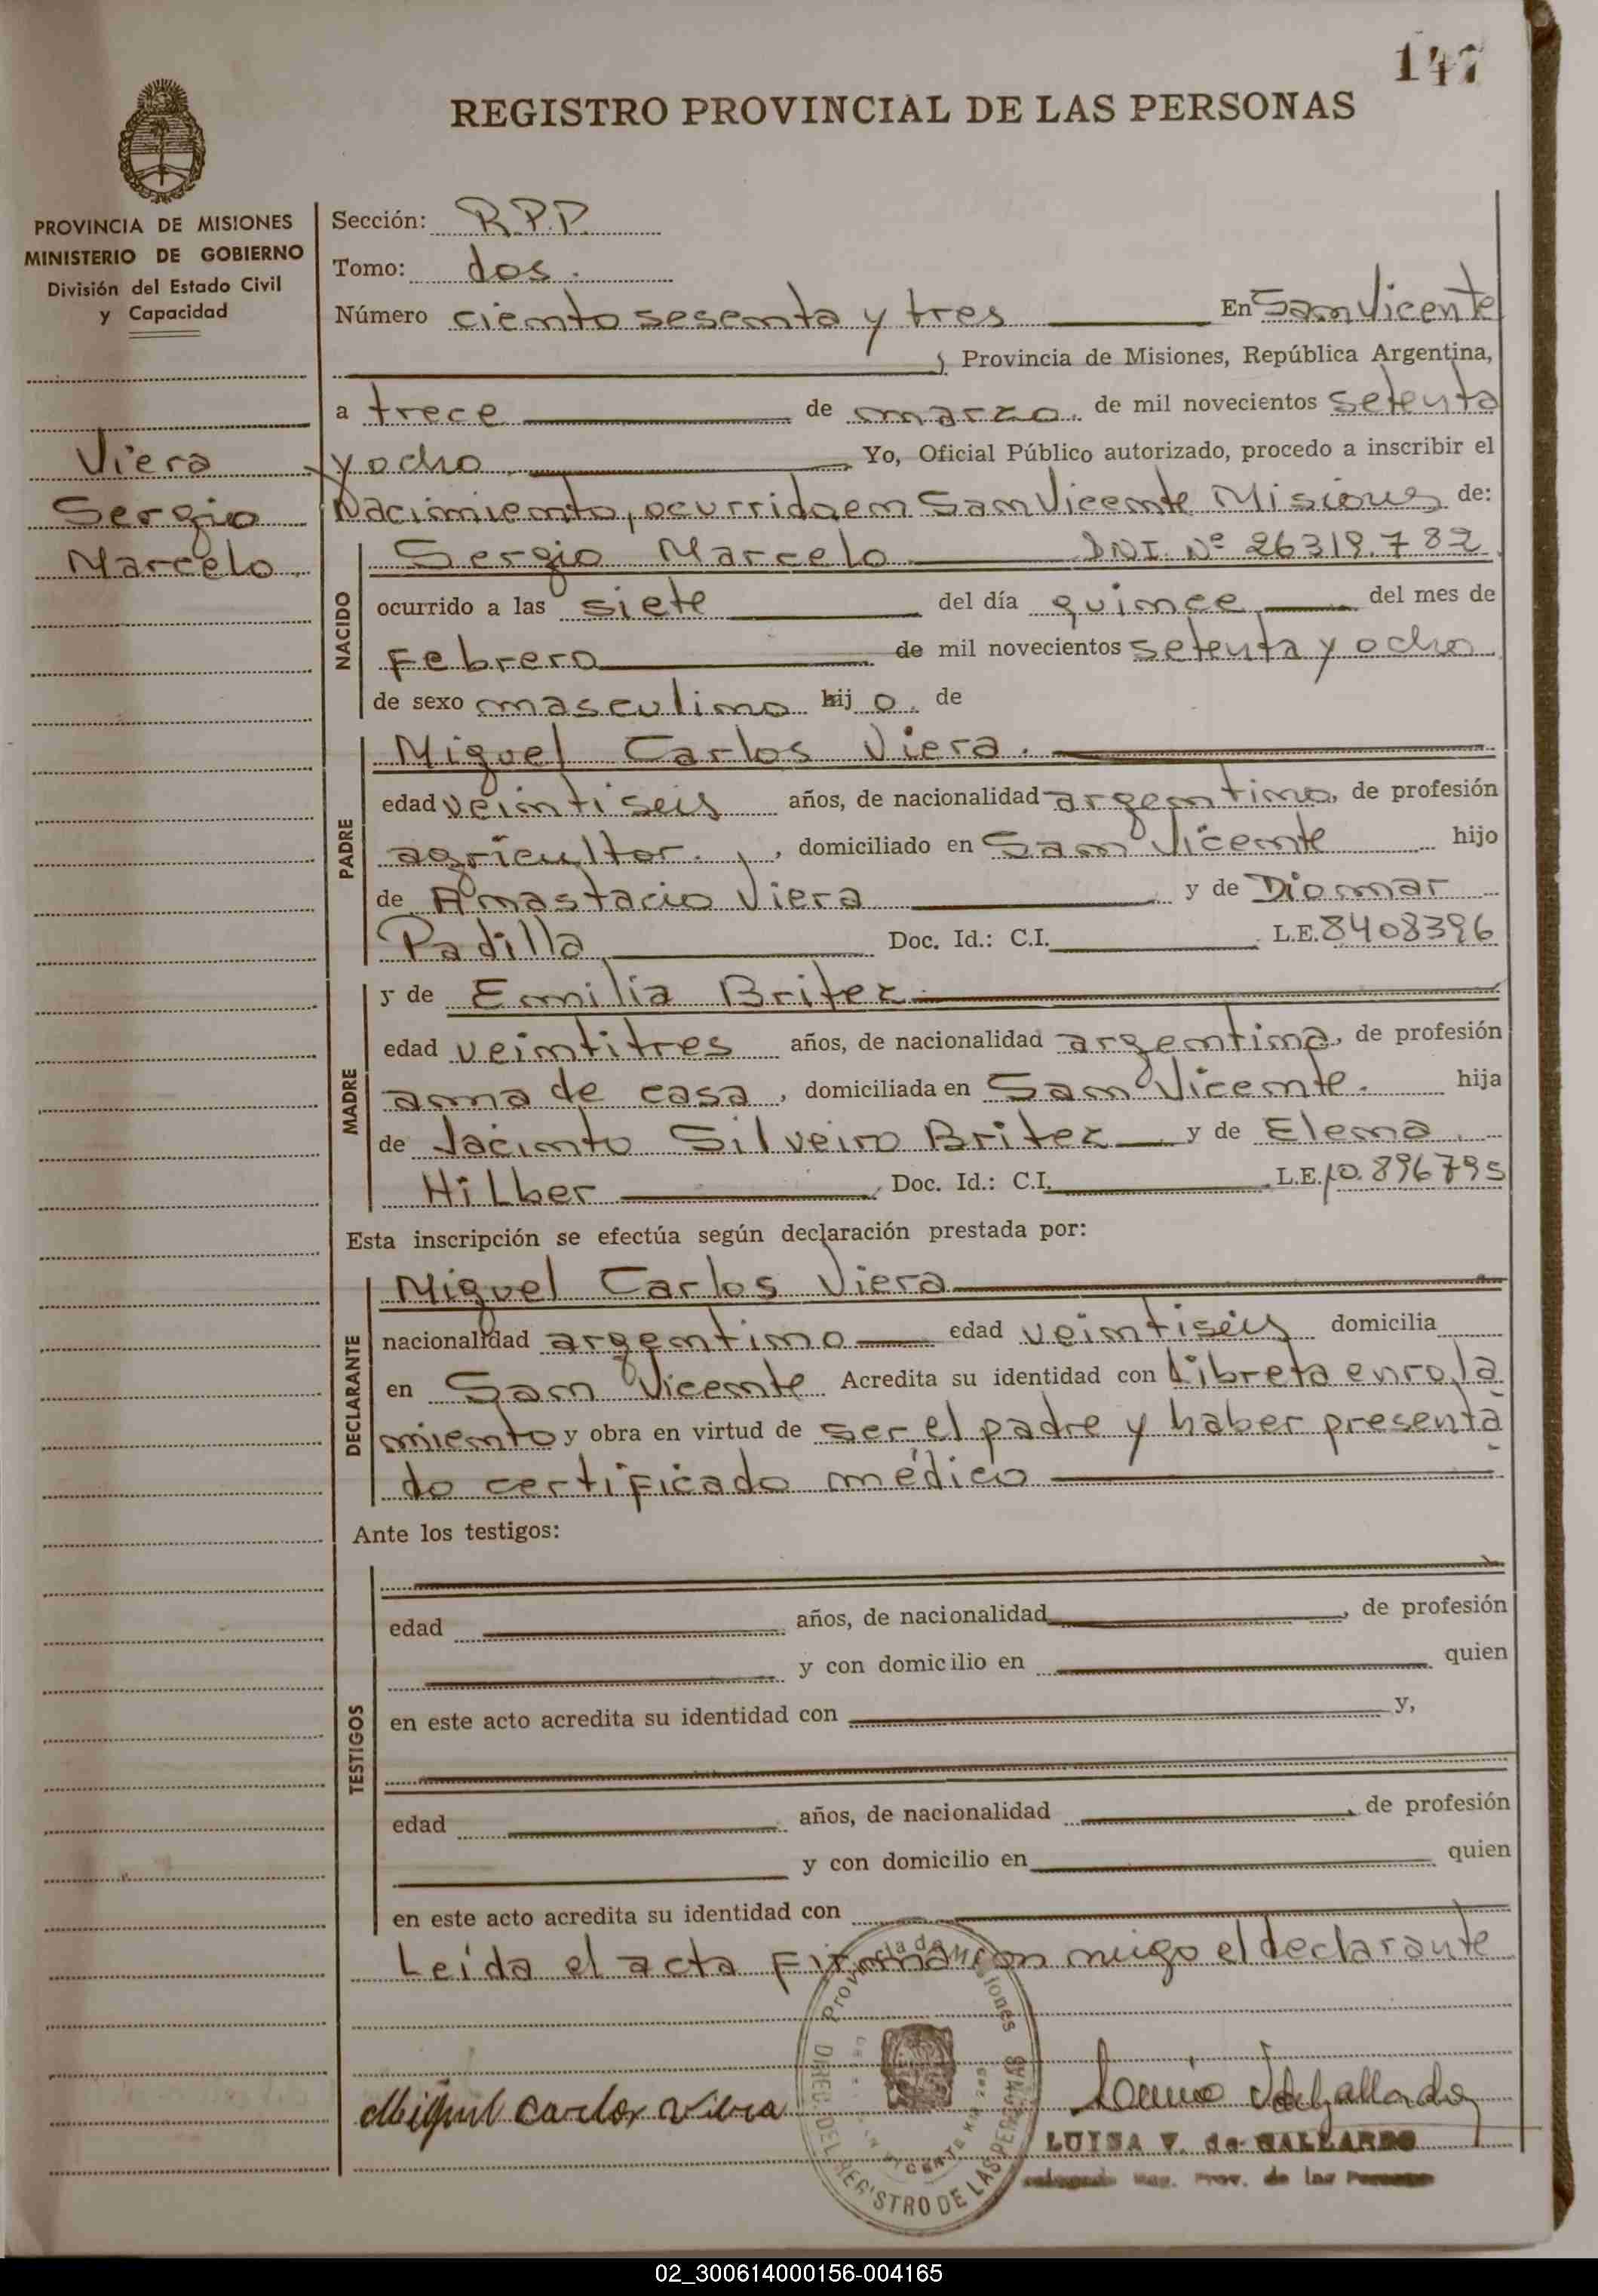 147
REGISTRO PROVINCIAL DE LAS PERSONAS
PROVINCIA DE MISIONES
MINISTERIO DE GOBIERNO
División del Estado Civil
y Capacidad
Viera
Sergio
Marcelo
Sección: R.P.P.
Tomo: dos.
Número ciento sesenta y tres En San Vicente
, Provincia de Misiones, República Argentina,
a trece de marzo. de mil novecientos setenta
y ocho Yo, Oficial Público autorizado, procedo a inscribir el
Nacimiento, ocurrido en San Vicente Misiones de:
NACIDO
Sergio Marcelo DNI. Nº 26319.782
ocurrido a las siete del día quince del mes de
Febrero de mil novecientos setenta y ocho
de sexo masculino hij o. de
PADRE
Miguel Carlos Viera.
edad veintiseis años, de nacionalidad argentino, de profesión
agricultor. , domiciliado en San Vicente hijo
de Anastacio Viera y de Diomar
Padilla Doc. Id.: C.I. L.E. 8408396
MADRE
y de Emilia Britez
edad veintitres años, de nacionalidad argentina, de profesión
ama de casa , domiciliada en San Vicente. hija
de Jacinto Silveiro Britez y de Elena
Hilber Doc. Id.: C.I. L.E. 10.896795
Esta inscripción se efectúa según declaración prestada por:
DECLARANTE
Miguel Carlos Viera
nacionalidad argentino edad veintiseis domicilia
en San Vicente Acredita su identidad con Libreta enrola
miento y obra en virtud de ser el padre y haber presenta
do certificado médico
Ante los testigos:
TESTIGOS
edad años, de nacionalidad , de profesión
y con domicilio en quien
en este acto acredita su identidad con y,
edad años, de nacionalidad , de profesión
y con domicilio en quien
en este acto acredita su identidad con
Leída el acta Firma con migo el declarante
Provincia de Misiones
DIREC. DEL REGISTRO DE LAS PERSONAS
Miguel Carlos Viera
LUISA V. de GALLARDO
Reg. Prov. de las Personas
02_300614000156-004165